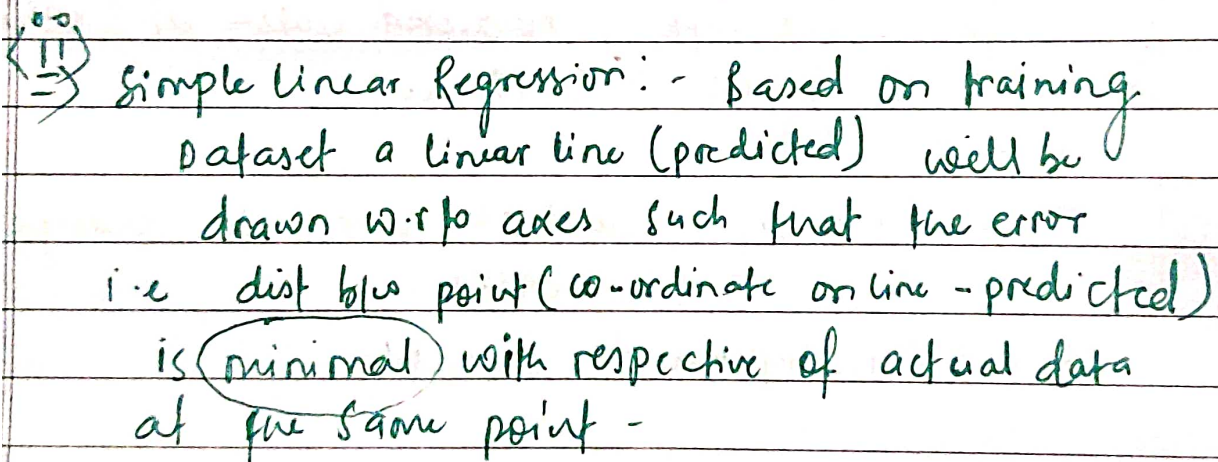 ii) => Simple Linear Regression :- Based on training
Dataset a linear line (predicted) will be
drawn w.r to axes such that the error
i.e dist b/w point (co-ordinate on line - predicted)
is minimal with respective of actual data
at the same point -